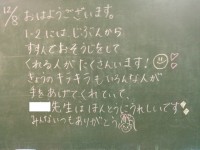 12/8 おはようございます。
1-2には じぶんから
すすんでおそうじをして
くれる人がたくさんいます!
きょうのキラキラもいろんな人が
手をあげてくれていて、
先生はほんとうにうれしいです
みんないつもありがとう